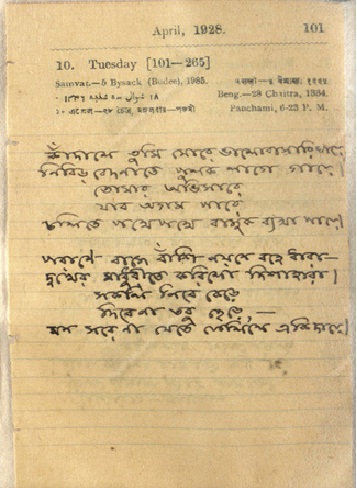 April, 1928.
101
10. Tuesday [101—265]
Samvat.—5 Bysack (Badee), 1985.
Beng.—28 Chuitra, 1334.
Panchami, 6-23 P. M.
কাঁদালে তুমি মোরে ভালোবাসারি ঘায়ে
নিবিড় বেদনাতে পুলক লাগে গায়ে।
তোমার অভিসারে
যাব অগম পারে
চলিতে পথে পথে বাজুক ব্যথা পায়ে।
পরাণে বাজে বাঁশি নয়নে বহে ধারা–
দুখের মাধুরীতে করিল দিশাহারা।
সকলি নিবে কেড়ে
দিবেনা তবু ছেড়ে,—
মন সরে না যেতে ফেলিলে একি দায়ে।